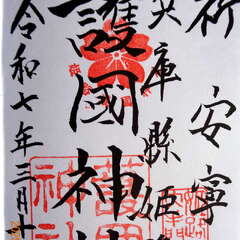 祈安寧
兵庫縣姫
護國神社
令和七年三月十
護國
神社